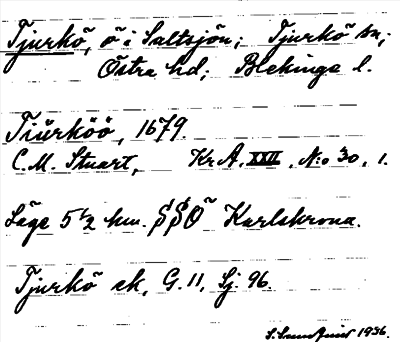 Tjurkö, ö i Saltsjön; Tjurkö sn;
Östra hd; Blekinge l.
Tiürköö, 1679.
C.M. Stuart, Kr A, XXII, N:o 30, 1.
Läge 5 1/2 km. SSO Karlskrona.
Tjurkö ek, G. 11, Sj 96.
1936.